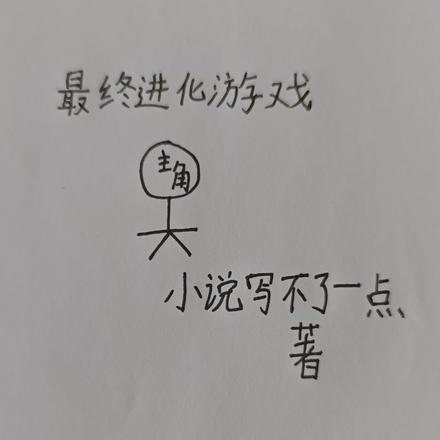 最终进化游戏
主角
小说写不了一点
著